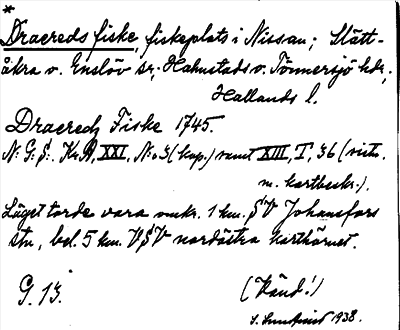 *
Dracreds fiske, fiskeplats i Nissan; Slätt-
åkra o. Enslöv sr, Halmstads o. Tönnersjö hdr,
Hallands l.
Dracredz Fiske 1745.
N: G: S: Kr. A, XXI, N:o 3 (kop.) samt XIII, T, 36 (
m. kartbeskr.).
Läget torde vara omkr. 1 km. SV Johansfors
stn, bel. 5 km. VSV nordöstra karthörnet.
G. 13.
(Vänd!)
S. 1938.